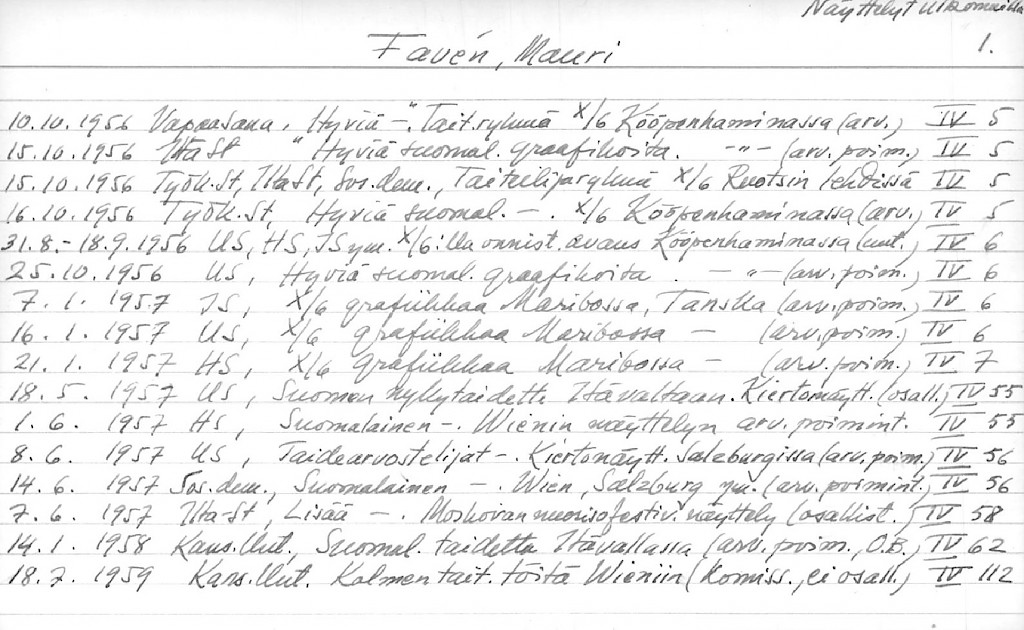 Näyttelyt ulkomailla
1.
Favén, Mauri
10.10.1956 Vapaa Sana, Hyviä -". Tait.ryhmä X/6 Kööpenhaminassa (arv.) IV 5
15.10.1956 Ilta St " Hyviä suomal. graafikoita. -"- (arv. poim.) IV 5
15.10.1956 Työk.St, IltaSt, Sos.dem., Taiteilijaryhmä X/6 Ruotsin lehdissä IV 5
16.10.1956 Työk.St, Hyviä suomal. -. X/6 Kööpenhaminassa (arv.) IV 5
31.8.-18.9.1956 US, HS, IS ym. X/6:lla onnist. avaus Kööpenhaminassa (uut.) IV 6
25.10.1956 US, Hyviä suomal. graafikoita. -"- (arv. poim.) IV 6
7.1.1957 IS, X/6 grafiikkaa Maribossa, Tanska (arv. poim.) IV 6
16.1.1957 US, X/6 grafiikkaa Maribossa - (arv. poim.) IV 6
21.1.1957 HS, X/6 grafiikkaa Maribossa - (arv. poim.) IV 7
18.5.1957 US, Suomen nykytaidetta Itävaltaan. Kiertonäytt. (osall.) IV 55
1.6.1957 HS, Suomalainen -. Wienin näyttelyn arv. poimint. IV 55
8.6.1957 US, Taidearvostelijat -. Kiertonäytt. Salzburgissa (arv. poim.) IV 56
14.6.1957 Sos.dem., Suomalainen -. Wien, Salzburg ym. (arv. poimint.) IV 56
7.6.1957 Ilta-St, Lisää -. Moskovan nuorisofestiv. näyttely (osallist.) IV 58
14.1.1958 Kans.Uut., Suomal. taidetta Itävallassa (arv. poim., O.B.) IV 62
18.7.1959 Kans.Uut. Kolmen tait. töitä Wieniin (Komiss., ei osall.) IV 112